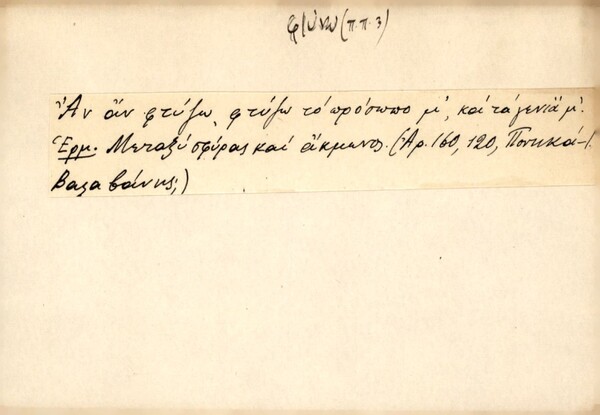 φτύνω (π.π. 3)
Ἂν ἄν φτύξω, φτύξω τό πρόσωπο μ', καί τά γένιᾳ μ'.
Ἑρμ. Μεταξύ σφύρας καί ἄκμωνος. (Ἀρ. 160, 120, Ποντικά-
Βαλαβάνης;)